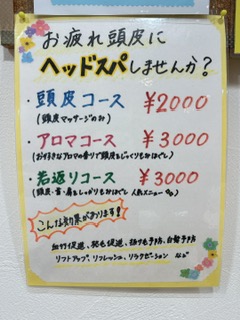 お疲れ頭皮に
ヘッドスパしませんか?
・頭皮コース ¥2000
(頭皮マッサージのみ)
・アロマコース ¥3000
(お好きなアロマの香りで頭皮をじっくりもみほぐし)
・若返りコース ¥3000
(頭皮・首・肩もしっかりもみほぐし 人気メニュー
こんな効果があります!
血行促進、発毛促進、抜け毛予防、白髪予防
リフトアップ、リフレッシュ、リラクゼーション など